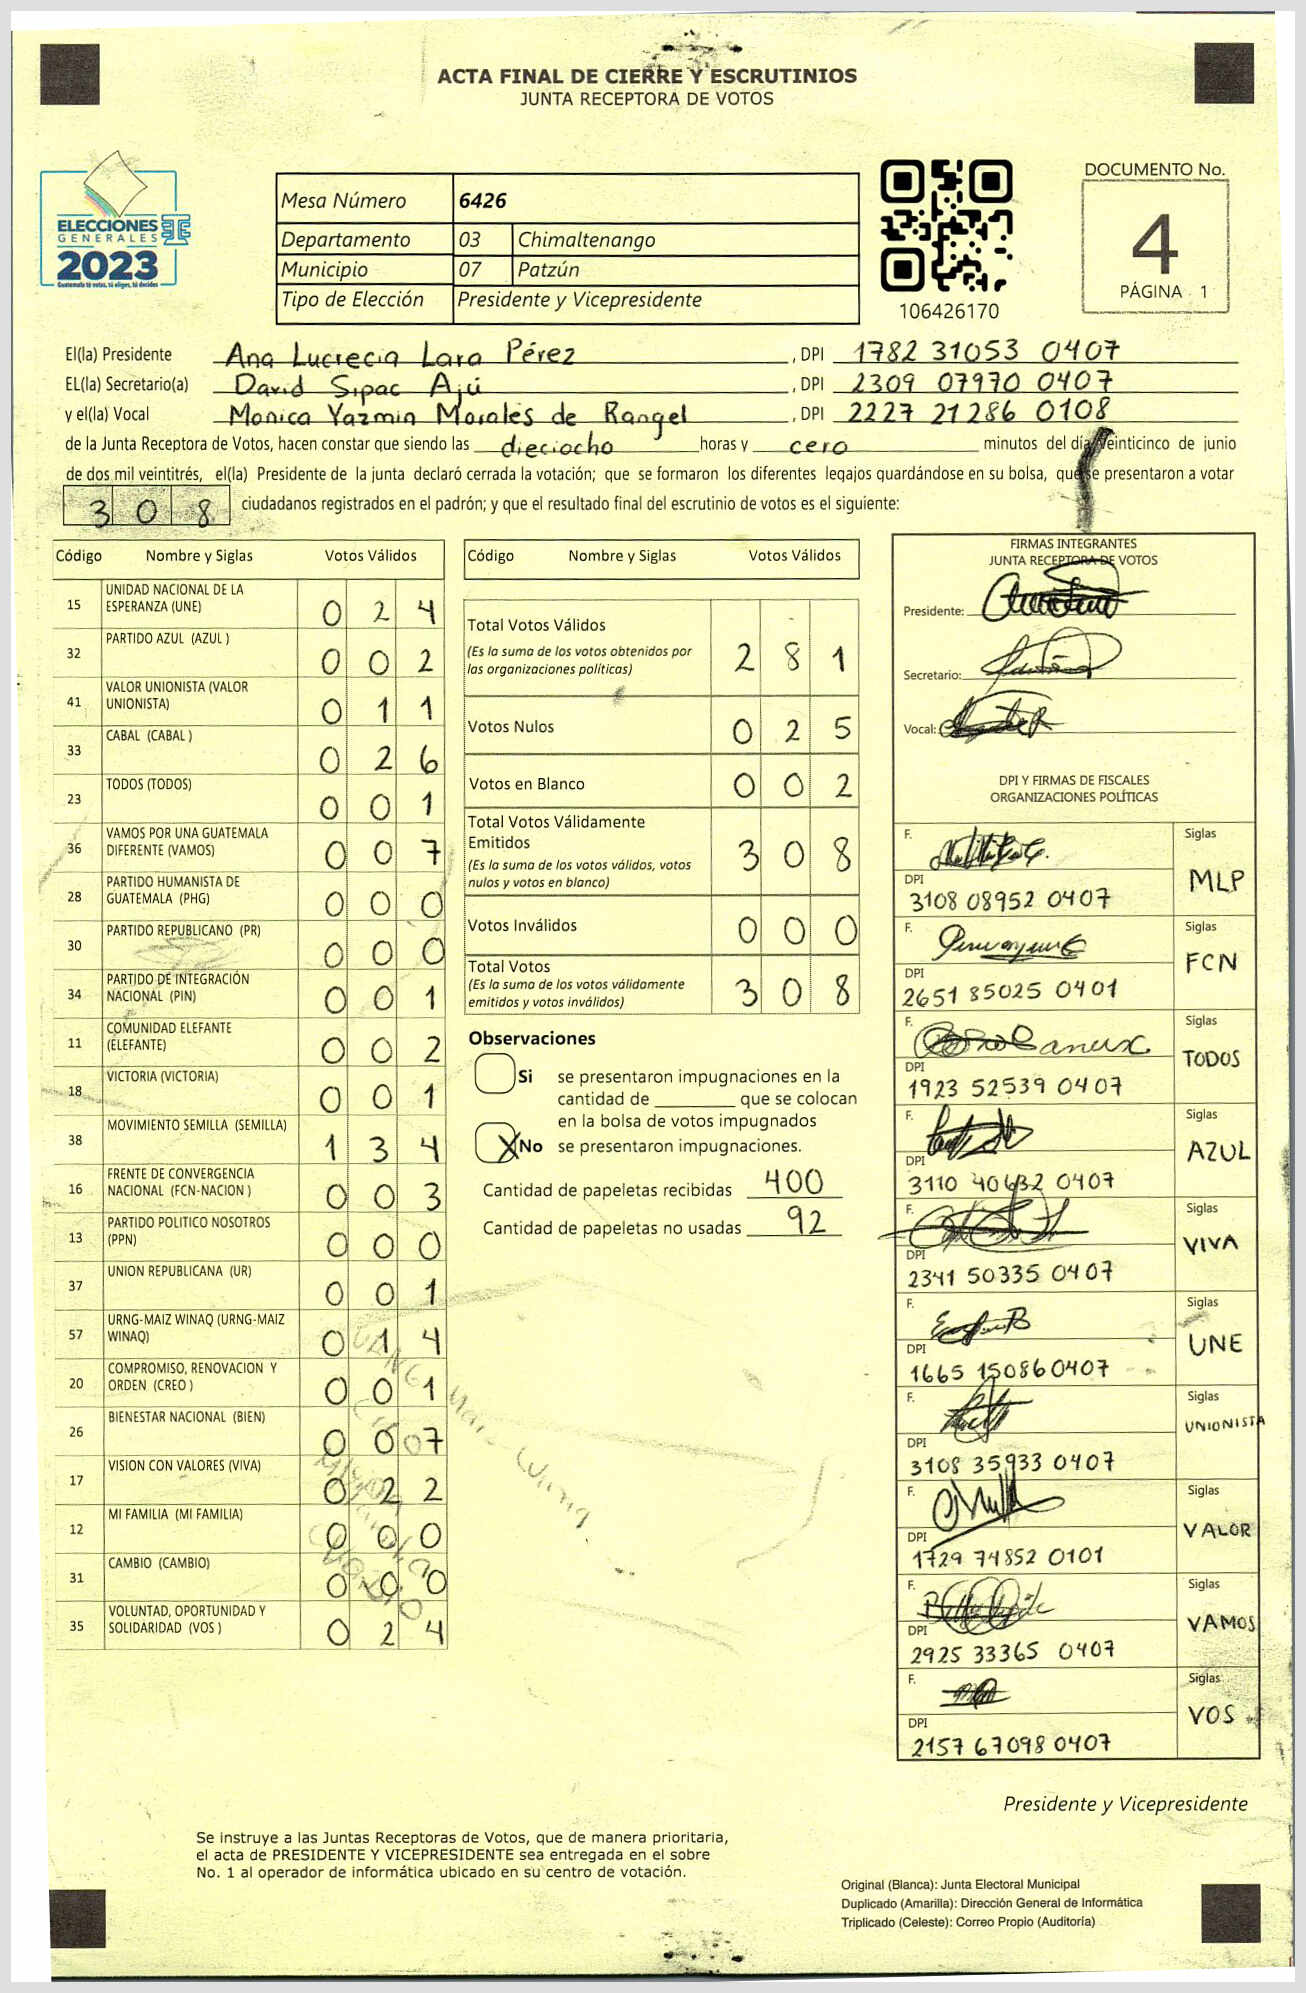 ACTA FINAL DE CIERRE Y ESCRUTINIOS
JUNTA RECEPTORA DE VOTOS
ELECCIONES
GENERALES
2023
Guatemala tú votas, tú eliges, tú decides
Mesa Número 6426
Departamento 03 Chimaltenango
Municipio 07 Patzún
Tipo de Elección Presidente y Vicepresidente
106426170
DOCUMENTO No.
4
PÁGINA 1
El(la) Presidente Ana Lucrecia Lara Pérez , DPI 1782 31053 0407
EL(la) Secretario(a) David Sipac Ajú , DPI 2309 07970 0407
y el(la) Vocal Monica Yazmin Morales de Rangel , DPI 2227 21286 0108
de la Junta Receptora de Votos, hacen constar que siendo las dieciocho horas y cero minutos del día veinticinco de junio
de dos mil veintitrés, el(la) Presidente de la junta declaró cerrada la votación; que se formaron los diferentes legajos guardándose en su bolsa, que se presentaron a votar
308 ciudadanos registrados en el padrón; y que el resultado final del escrutinio de votos es el siguiente:
Código Nombre y Siglas Votos Válidos
15 UNIDAD NACIONAL DE LA ESPERANZA (UNE) 0 2 4
32 PARTIDO AZUL (AZUL ) 0 0 2
41 VALOR UNIONISTA (VALOR UNIONISTA) 0 1 1
33 CABAL (CABAL ) 0 2 6
23 TODOS (TODOS) 0 0 1
36 VAMOS POR UNA GUATEMALA DIFERENTE (VAMOS) 0 0 7
28 PARTIDO HUMANISTA DE GUATEMALA (PHG) 0 0 0
30 PARTIDO REPUBLICANO (PR) 0 0 0
34 PARTIDO DE INTEGRACIÓN NACIONAL (PIN) 0 0 1
11 COMUNIDAD ELEFANTE (ELEFANTE) 0 0 2
18 VICTORIA (VICTORIA) 0 0 1
38 MOVIMIENTO SEMILLA (SEMILLA) 1 3 4
16 FRENTE DE CONVERGENCIA NACIONAL (FCN-NACION ) 0 0 3
13 PARTIDO POLITICO NOSOTROS (PPN) 0 0 0
37 UNION REPUBLICANA (UR) 0 0 1
57 URNG-MAIZ WINAQ (URNG-MAIZ WINAQ) 0 1 4
20 COMPROMISO, RENOVACION Y ORDEN (CREO ) 0 0 1
26 BIENESTAR NACIONAL (BIEN) 0 0 7
17 VISION CON VALORES (VIVA) 0 2 2
12 MI FAMILIA (MI FAMILIA) 0 0 0
31 CAMBIO (CAMBIO) 0 0 0
35 VOLUNTAD, OPORTUNIDAD Y SOLIDARIDAD (VOS ) 0 2 4
Código Nombre y Siglas Votos Válidos
Total Votos Válidos 2 8 1
(Es la suma de los votos obtenidos por
las organizaciones políticas)
Votos Nulos 0 2 5
Votos en Blanco 0 0 2
Total Votos Válidamente
Emitidos 3 0 8
(Es la suma de los votos válidos, votos
nulos y votos en blanco)
Votos Inválidos 0 0 0
Total Votos
(Es la suma de los votos válidamente
emitidos y votos inválidos) 3 0 8
Observaciones
Si se presentaron impugnaciones en la
cantidad de ________ que se colocan
en la bolsa de votos impugnados
X No se presentaron impugnaciones.
Cantidad de papeletas recibidas 400
Cantidad de papeletas no usadas 92
FIRMAS INTEGRANTES
JUNTA RECEPTORA DE VOTOS
Presidente:
Secretario:
Vocal:
DPI Y FIRMAS DE FISCALES
ORGANIZACIONES POLÍTICAS
F. Siglas
DPI MLP
3108 08952 0407
F. Siglas
DPI FCN
2651 85025 0401
F. Siglas
DPI TODOS
1923 52539 0407
F. Siglas
DPI AZUL
3110 40632 0407
F. Siglas
DPI VIVA
2341 50335 0407
F. Siglas
DPI UNE
1665 15086 0407
F. Siglas
DPI UNIONISTA
3108 35933 0407
F. Siglas
DPI VALOR
1729 74852 0101
F. Siglas
DPI VAMOS
2925 33365 0407
F. Siglas
DPI VOS
2157 67098 0407
Presidente y Vicepresidente
Se instruye a las Juntas Receptoras de Votos, que de manera prioritaria,
el acta de PRESIDENTE Y VICEPRESIDENTE sea entregada en el sobre
No. 1 al operador de informática ubicado en su centro de votación.
Original (Blanca): Junta Electoral Municipal
Duplicado (Amarilla): Dirección General de Informática
Triplicado (Celeste): Correo Propio (Auditoría)